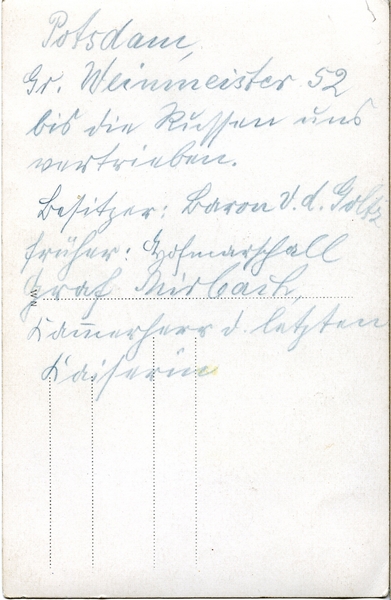 Potsdam,
Gr. Weinmeister 52
bis die Russen uns
vertrieben.
Besitzer: Baron v. d. Goltz
früher: Hofmarschall
Graf Mirbach,
Kam̅erherr d. letzten
Kaiserin
WN